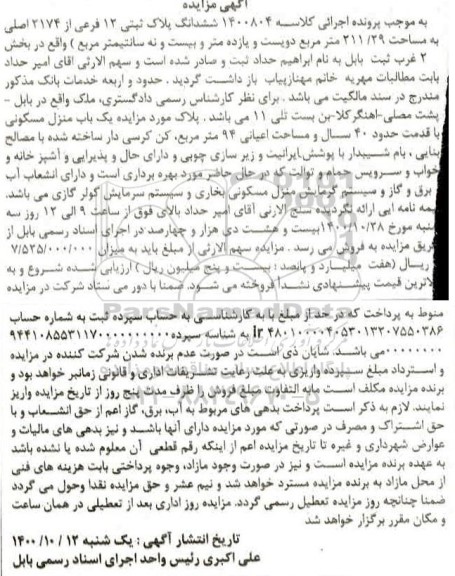 آگهی مزایده
به موجب پرونده اجرائی کلاسه ۱۴۰۰۸۰۴ ششدانگ پلاک ثبتی ۱۲ فرعی از ۲۱۷۴ اصلی
به مساحت ۲۱۱/۲۹ متر مربع دویست و یازده متر و بیست و نه سانتیمتر مربع ) واقع در بخش
۲ غرب ثبت بابل به نام ابراهیم حداد ثبت و صادر شده است و سهم الارثی آقای امیر حداد
بابت مطالبات مهریه خانم مهنازبیاب باز داشت گردید . حدود و اربعه خدمات بانک مذکور
مندرج در سند مالکیت می باشد . برای نظر کارشناس رسمی دادگستری، ملک واقع در بابل –
پشت مصلی-اهنگرکلا-بن بست تلی ۱۱ می باشد . پلاک مورد مزایده یک باب منزل مسکونی
با قدمت حدود ۴۰ سال و مساحت اعیانی ۹۴ متر مربع، کن کرسی دار ساخته شده با مصالح
بنایی ، بام شیبدار با پوشش ایرانیت و زیر سازی چوبی و دارای حال و پذیرایی و آشپز خانه و
خواب و سرویس حمام و توالت که در حال حاضر مورد بهره برداری است و دارای انشعاب آب
برق و گاز و سیستم گرمایش منزل مسکونی بخاری و سیستم سرمایش کولر گازی می باشد.
بیمه نامه ایی ارائه نگردیده سنج آلارثی آقای امیر حداد بالای فوق از ساعت ۹ الی ۱۲ روز سه
شنبه مورخ ۱۴۰۰/۱۰/۲۸ بیست و هشت دی هزار و چهارصد در اجرای اسناد رسمی بابل از
طریق مزایده به فروش می رسد . مزایده سهم الارثی از مبلغ باید به میزان ۷/۵۳۵/۰۰۰/۰۰۰
ریال (هفت میلیارد و پانصد : بیست و پنج میلیون ریال ) ارزیابی شده شروع و به
بالاترین قیمت پیشنهادی نقدا فروخته می شود. ضمنا با دور می ستاد شرکت در مزایده
منوط به پرداخت که در حد از مبلغ با به کارشناسی به حساب سپرده ثبت به شماره حساب
Ir ۴۸۰۱۰۰۰۰۴۰۵۳۰۱۳۲۰۷۵۵۰۳۸۶ به شناسه سپرده ۹۴۴۱۰۸۵۵۳۱۱۷۰۰۰۰۰۰۰۰۰۰۰
۰۰۰۰۰۰۰۰ می باشد. شایان ذی است در صورت عدم برنده شدن شرکت کننده در مزایده
و استرداد مبلغ سپرده واریزی به علت رعایت تشریفات اداری و قانونی زمانبر خواهد بود و
برنده مزایده مکلف است مابه التفاوت مبلغ فروش را ظرف مدت پنج روز از تاریخ مزایده واریز
نمایند. لازم به ذکر است پرداخت بدهی های مربوط به آب، برق، گاز اعم از حق انشعاب و با
حق اشتراک و مصرف در صورتی که مورد مزایده دارای آنها باشد و نیز بدهی های مالیات و
عوارض شهرداری و غیره تا تاریخ مزایده اعم از اینکه رقم قطعی آن معلوم شده یا نشده باشد
به عهده برنده مزایده است و نیز در صورت وجود مازاد، وجوه پرداختی بابت هزینه های فنی
از محل مازاد به برنده مزایده مسترد خواهد شد و نیم عشر و حق مزایده نقدا وحول می گردد
ضمنا چنانچه روز مزایده تعطیل رسمی گردد. مزایده روز اداری بعد از تعطیلی در همان ساعت
و مکان مقرر برگزار خواهد شد
تاریخ انتشار آگهی : یک شنبه ۱۲ /۱۰ /۱۴۰۰
علی اکبری رئیس واحد اجرای اسناد رسمی بابل